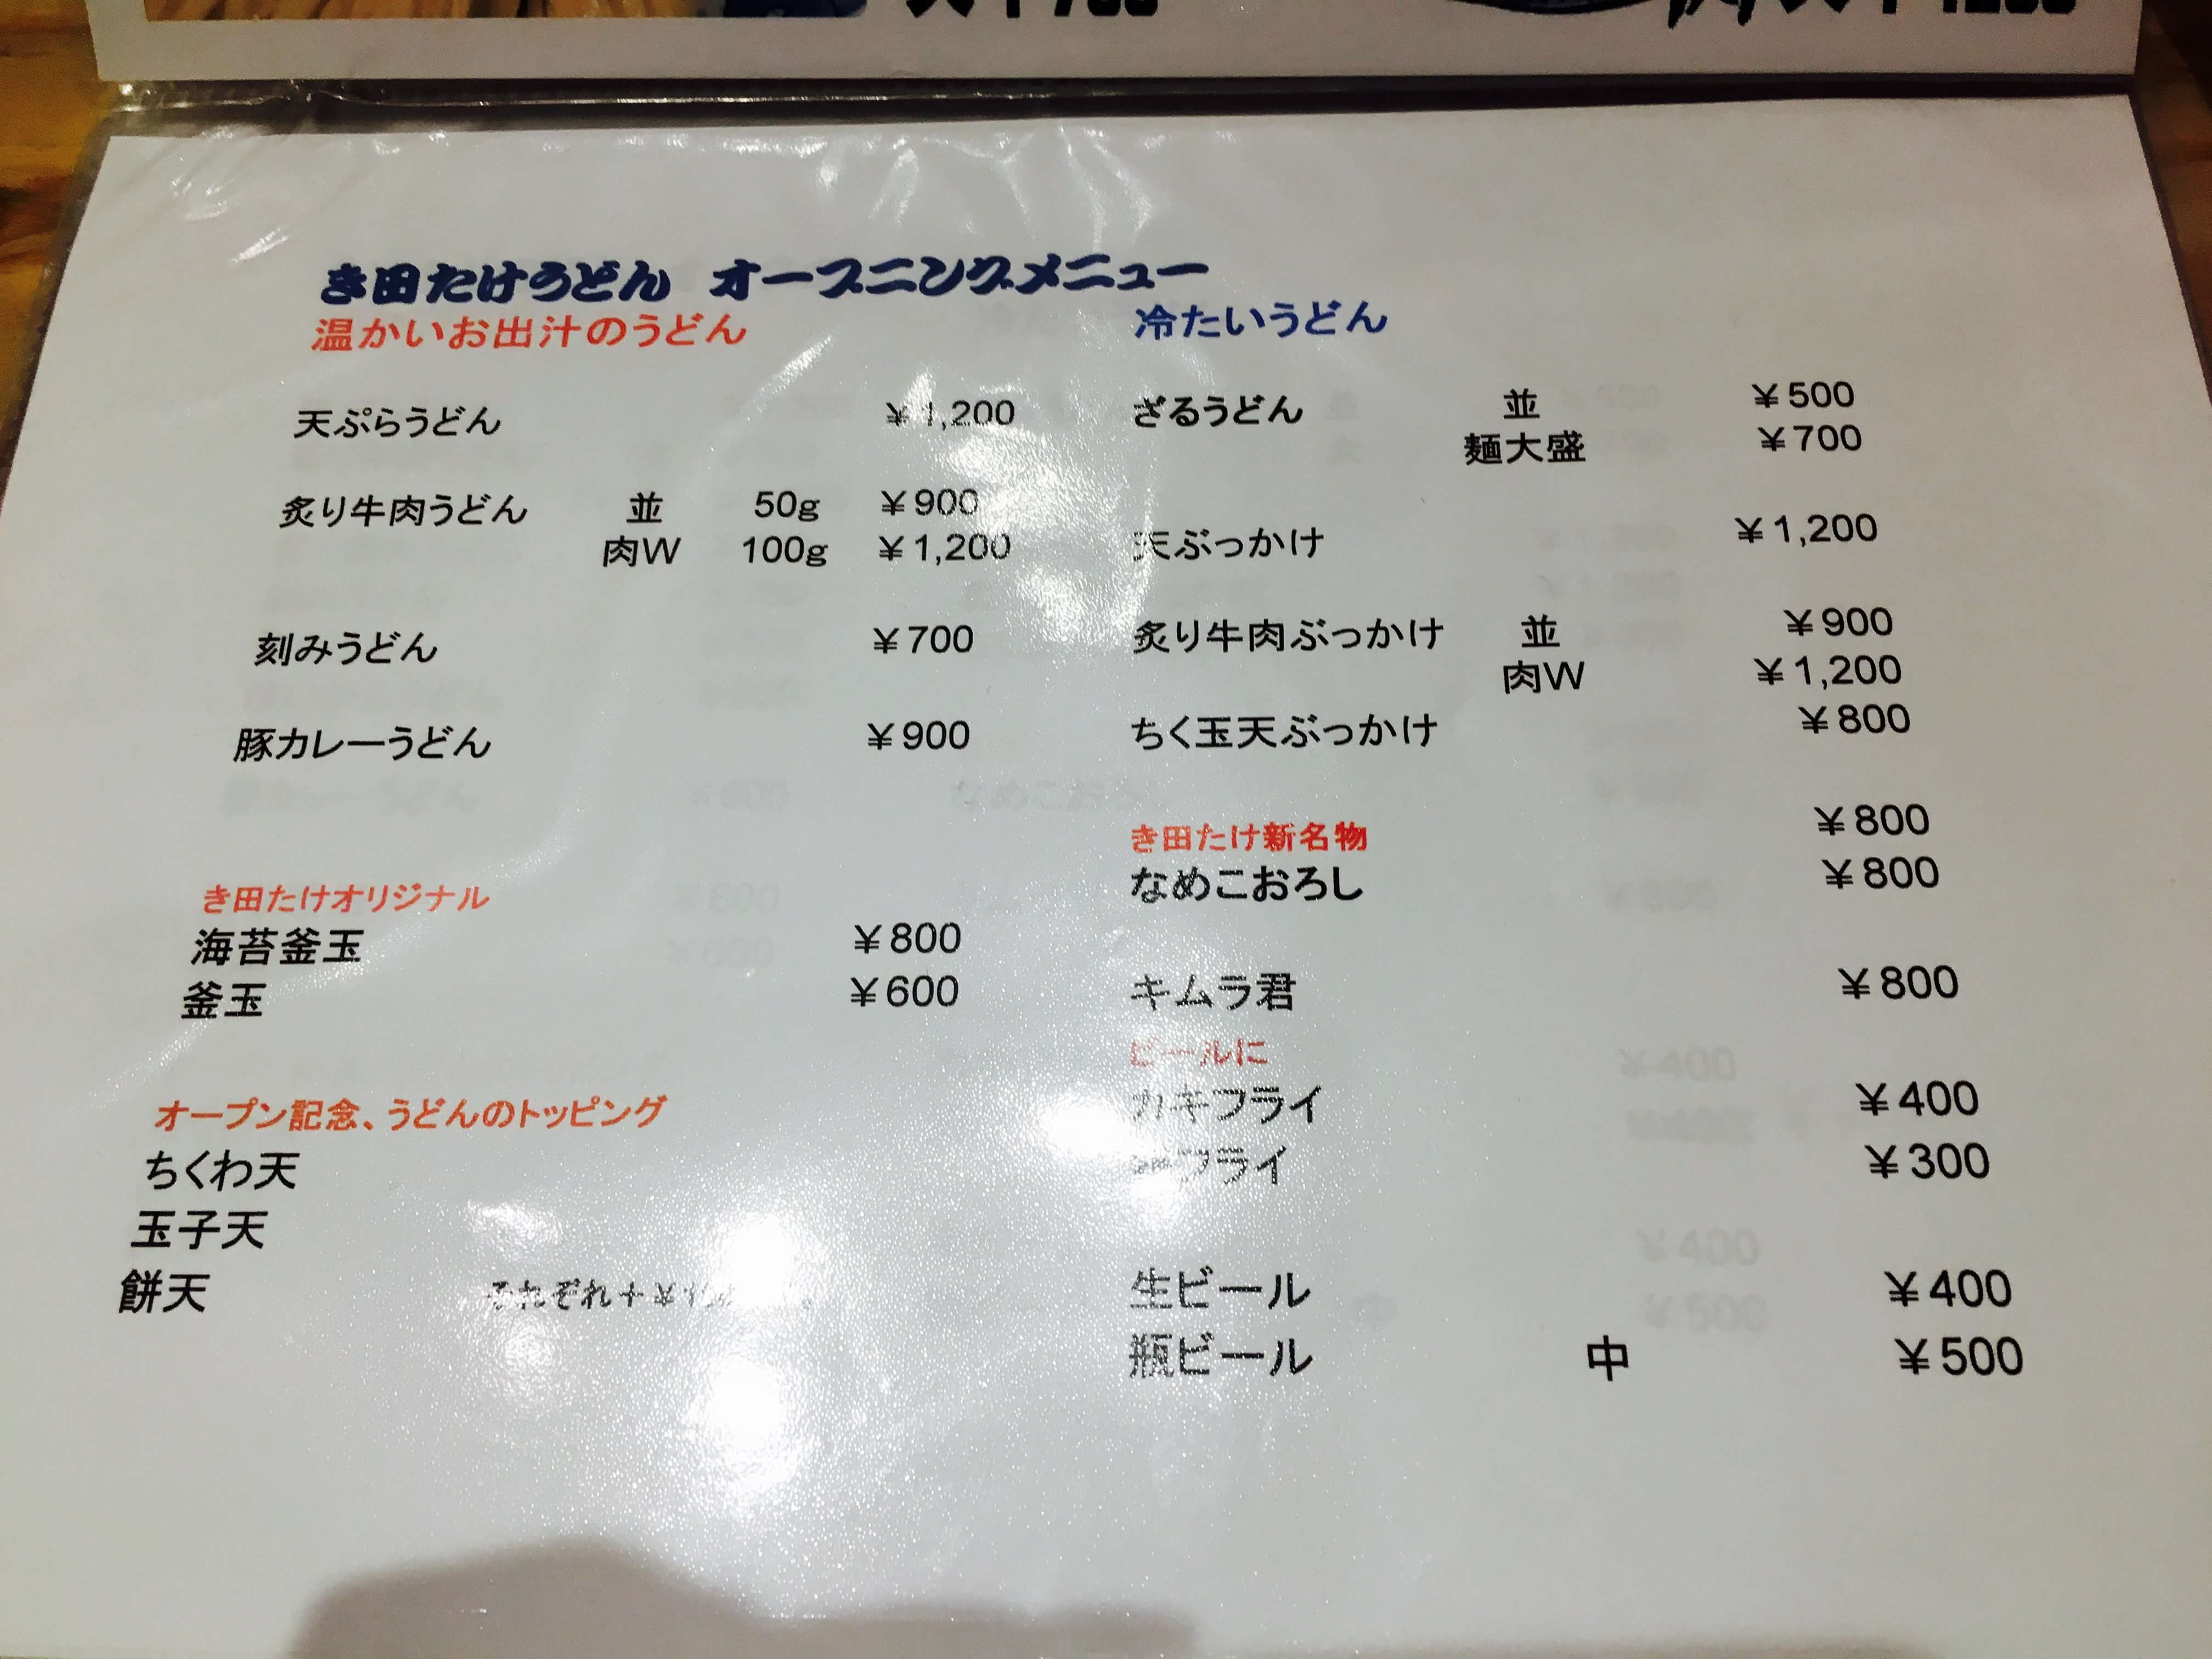 き田たけうどん オープニングメニュー
温かいお出汁のうどん
天ぷらうどん ¥1,200
炙り牛肉うどん 並 50g ¥900
肉W 100g ¥1,200
刻みうどん ¥700
豚カレーうどん ¥900
き田たけオリジナル
海苔釜玉 ¥800
釜玉 ¥600
オープン記念、うどんのトッピング
ちくわ天
玉子天
餅天 それぞれ+¥
冷たいうどん
ざるうどん 並 ¥500
麺大盛 ¥700
天ぶっかけ ¥1,200
炙り牛肉ぶっかけ 並 ¥900
肉W ¥1,200
ちく玉天ぶっかけ ¥800
き田たけ新名物 ¥800
なめこおろし ¥800
キムラ君 ¥800
ビールに
カキフライ ¥400
フライ ¥300
生ビール ¥400
瓶ビール 中 ¥500